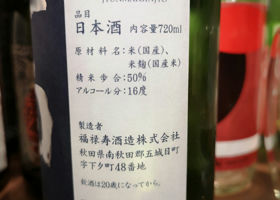 品目
日本酒 内容量720ml
原材料名:米(国産)、
米麹(国産米)
精米歩合:50%
アルコール分:16度
製造者
福禄寿酒造株式会社
秋田県南秋田郡五城目町
字下夕町48番地
飲酒は20歳になってから。